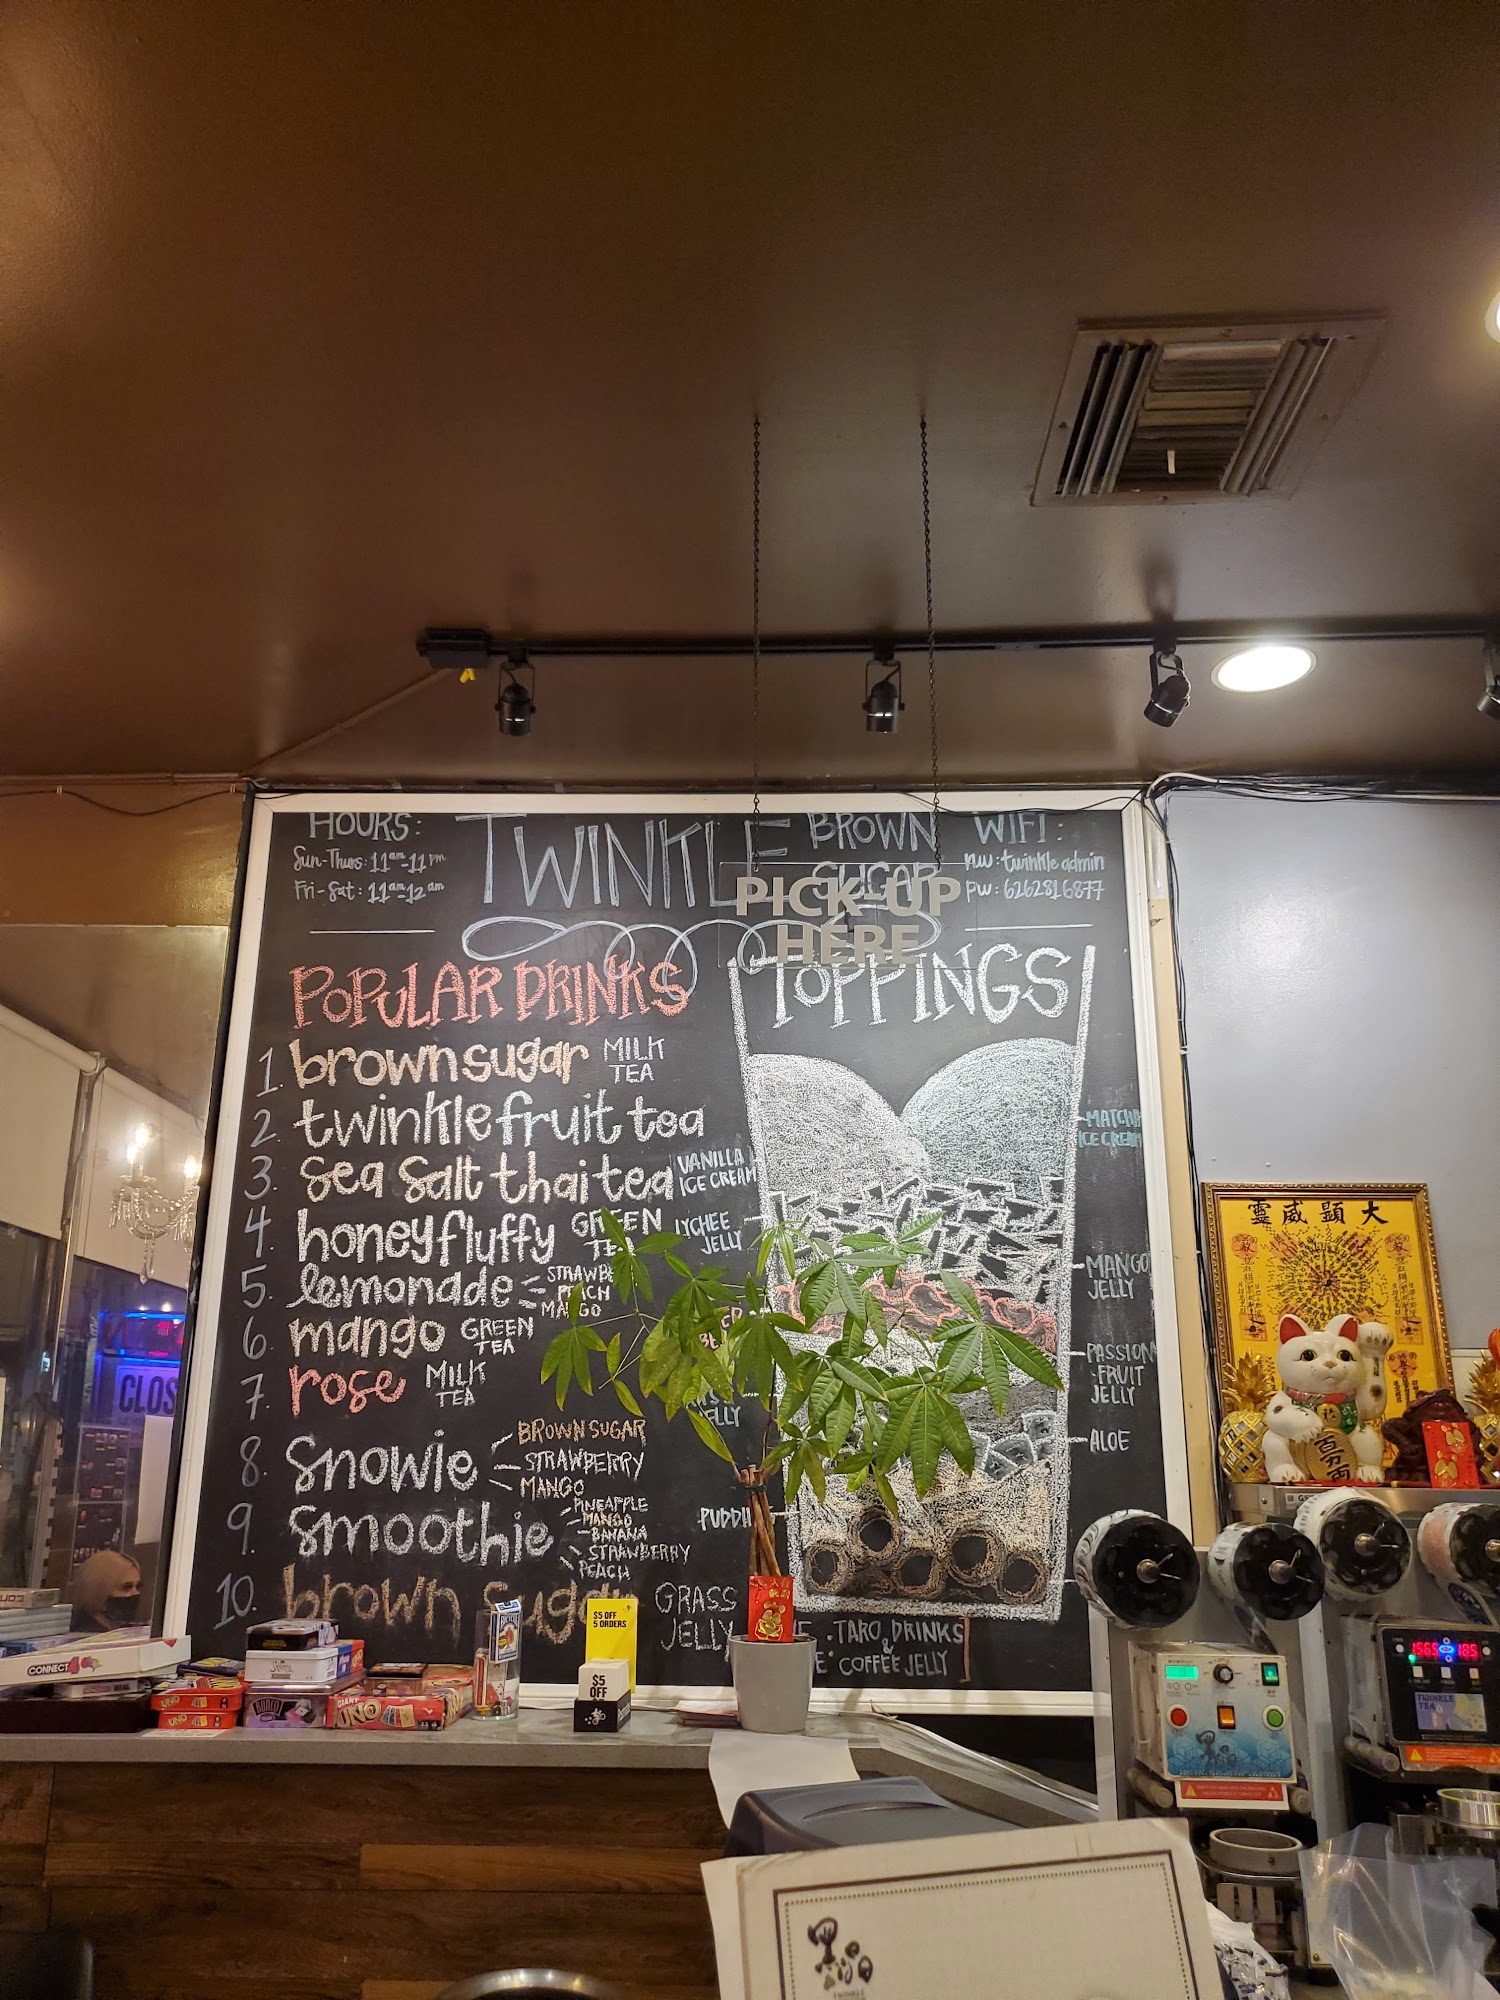 HOURS:
Sun-Thurs: 11am-11pm
Fri-Sat: 11am-12am
TWINKLE
BROWN
SUGAR
WIFI:
nw: twinkle admin
pw: 6262816877
PICK-UP
HERE
POPULAR DRINKS
1. brown sugar MILK TEA
2. twinkle fruit tea
3. sea salt thai tea
4. honey fluffy GREEN TEA
5. lemonade
STRAWBE
PEACH
MANGO
6. mango GREEN TEA
7. rose MILK TEA
8. snowie
BROWN SUGAR
STRAWBERRY
MANGO
9. smoothie
PINEAPPLE
MANGO
BANANA
STRAWBERRY
PEACH
10. brown suga
TOPPINGS
VANILLA
ICE CREAM
LYCHEE
JELLY
JELLY
PUDDI
GRASS
JELLY
MATCHA
ICE CREAM
MANGO
JELLY
PASSION
-FRUIT
JELLY
ALOE
TARO DRINKS
&
COFFEE JELLY
CLOS
大顯威靈
百万両
CONNECT 4
UNO
UNO
GIANT
UNO
$5 OFF
5 ORDERS
$5
OFF
TWINKLE
TEA